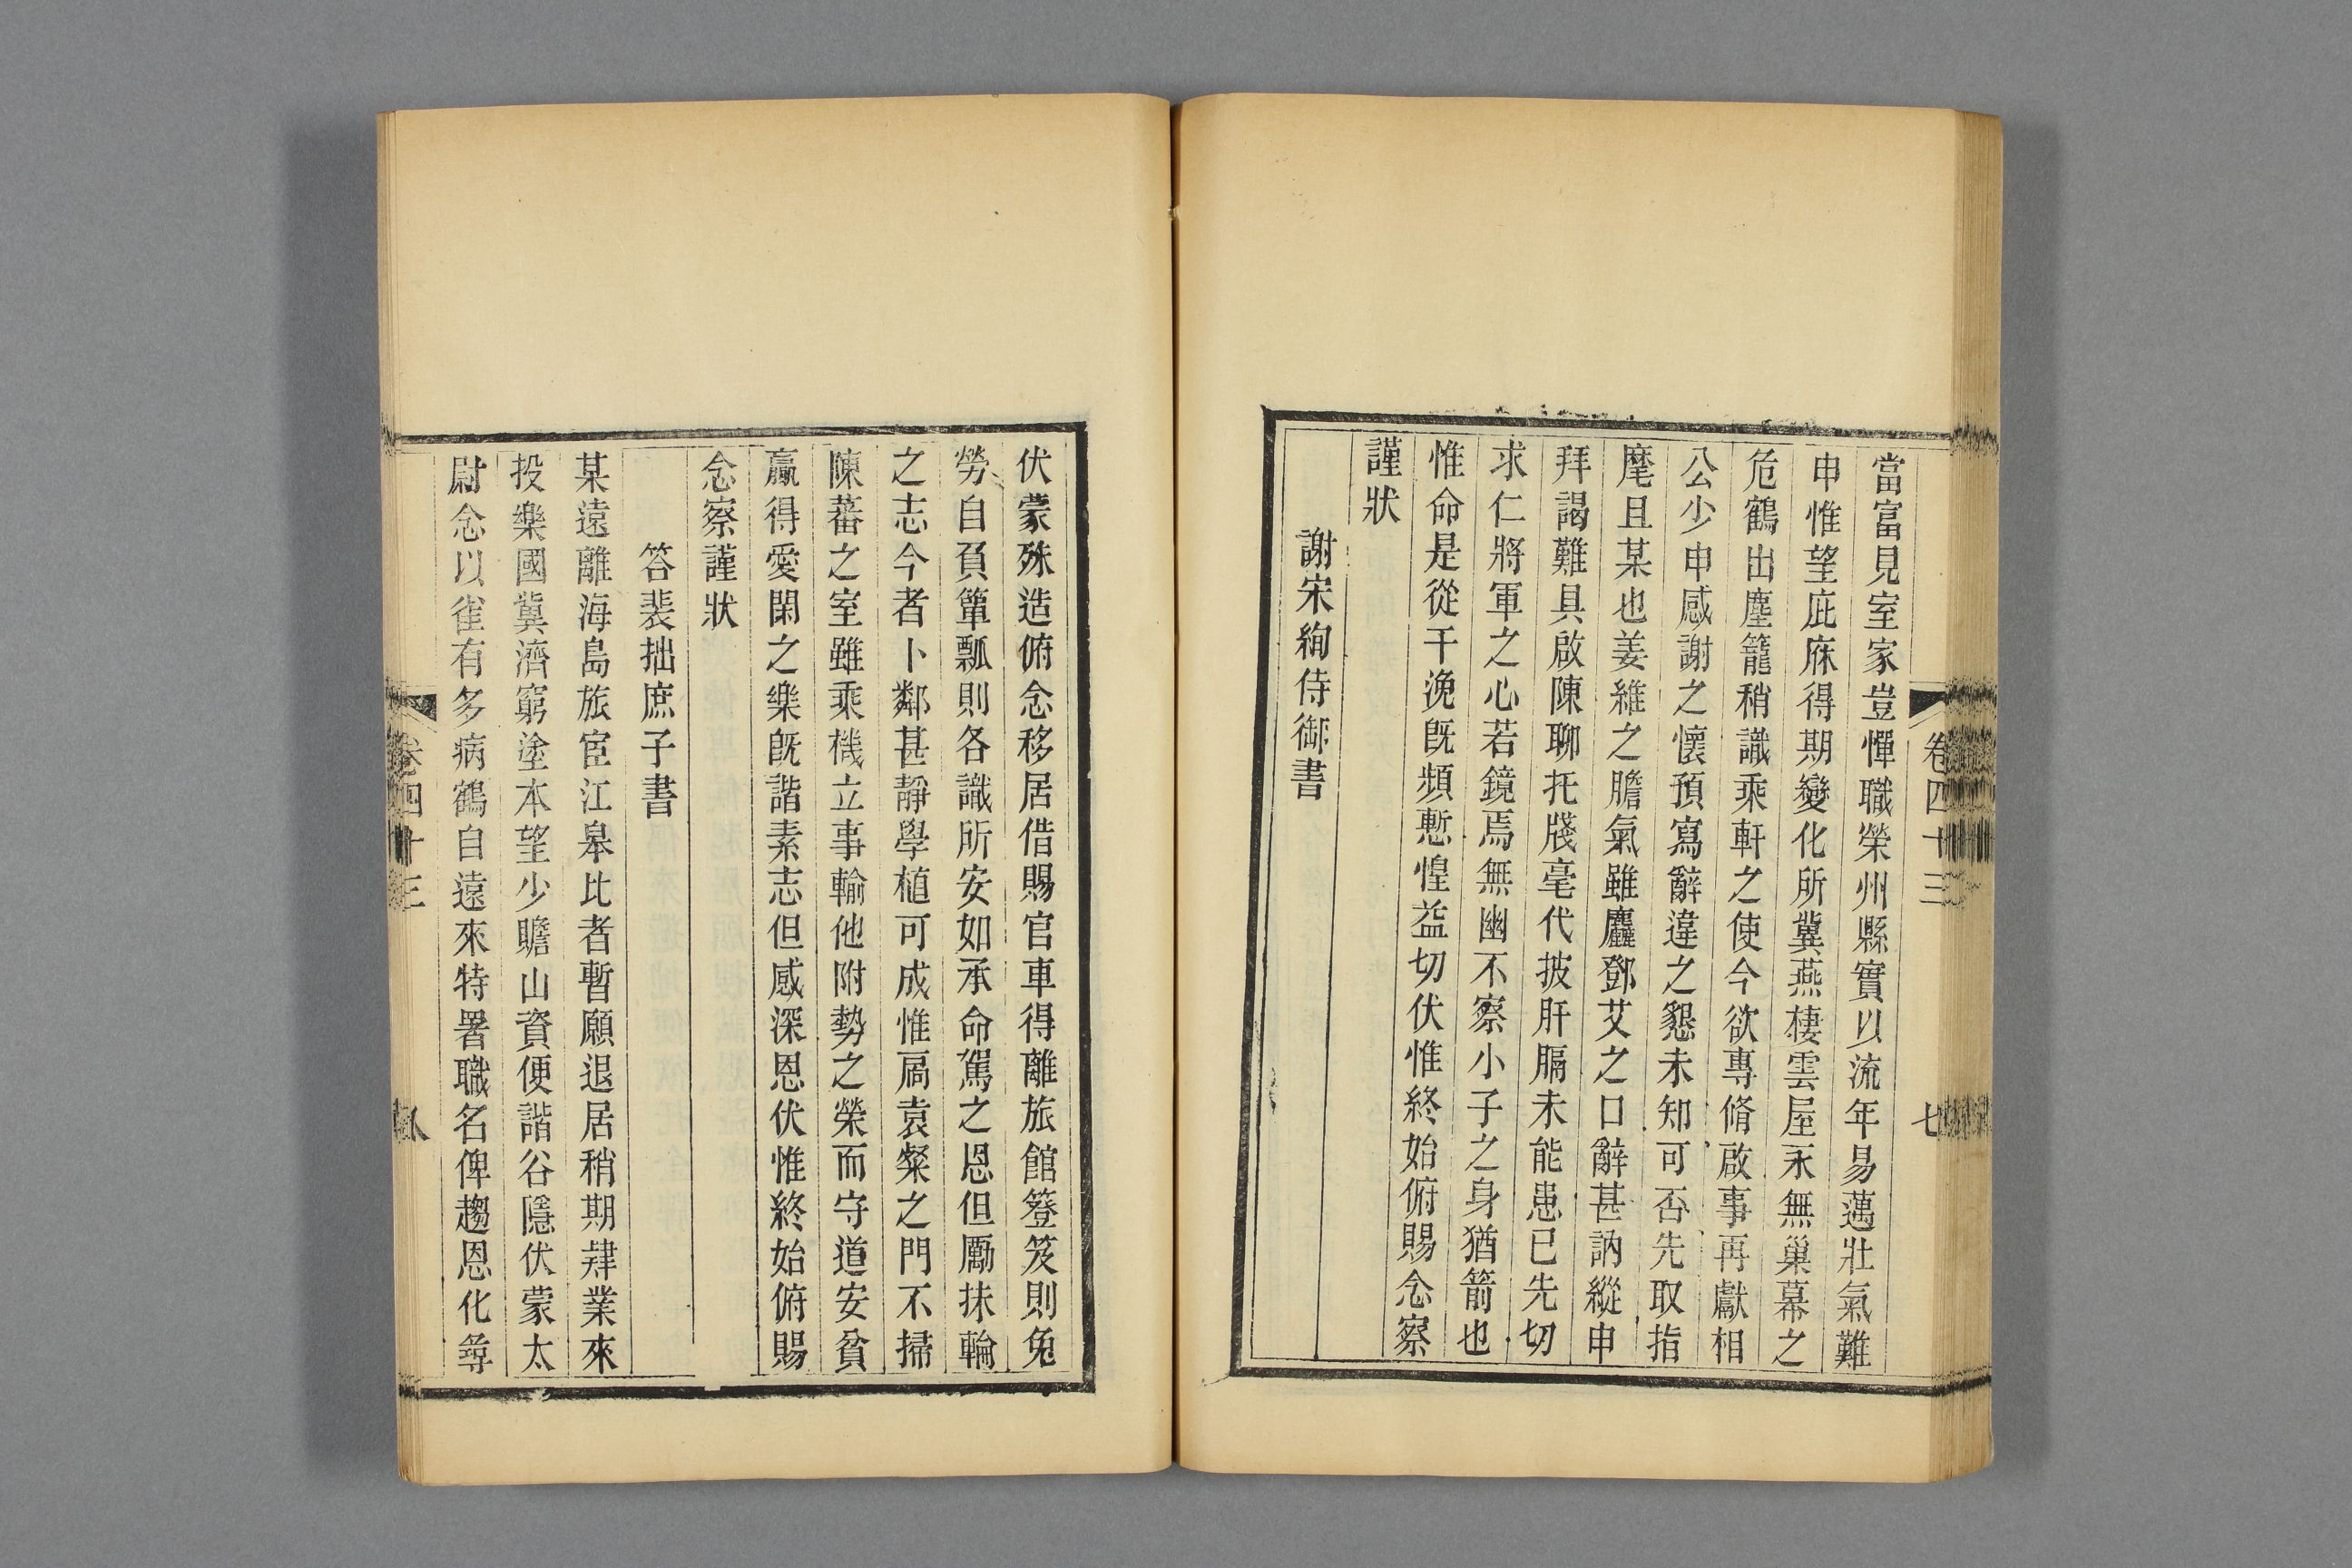 卷四十三
七
當富見室家豈憚職榮州縣實以流年易邁壯氣難
申惟望庇庥得期變化所冀燕棲雲屋永無巢幕之
危鶴出塵籠稍識乘軒之使今欲專脩啟事再獻相
公少申感謝之懷預寫辭違之懇未知可否先取指
麾且某也姜維之膽氣雖麤鄧艾之口辭甚訥縱申
拜謁難具啟陳聊托牋毫代披肝膈未能患已先切
求仁將軍之心若鏡焉無幽不察小子之身猶箭也
惟命是從干浼既頻慙惶益切伏惟終始俯賜念察
謹狀
謝宋絢侍御書
伏蒙殊造俯念移居借賜官車得離旅館簦笈則免
勞自負簞瓢則各識所安如承命駕之恩但勵抹輪
之志今者卜鄰甚靜學植可成惟扃袁粲之門不掃
陳蕃之室雖乘機立事輸他附勢之榮而守道安貧
贏得愛閑之樂既諧素志但感深恩伏惟終始俯賜
念察謹狀
答裴拙庶子書
某遠離海島旅宦江皋比者暫願退居稍期肄業來
投樂國冀濟窮塗本望少贍山資便諧谷隱伏蒙太
尉念以雀有多病鶴自遠來特署職名俾趨恩化尋
卷四十三
八